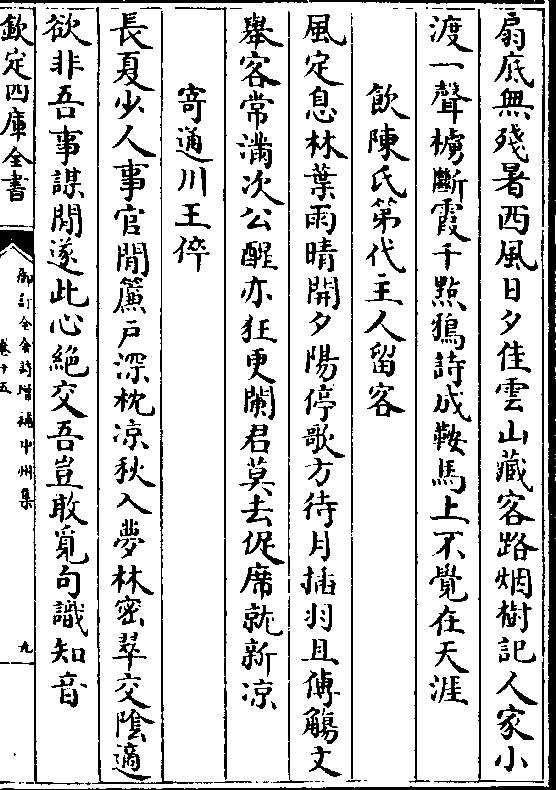 扇底無殘暑西風日夕佳雲山藏客路烟樹記人家小
渡一聲櫓斷霞千點鵶詩成鞍馬上不覺在天涯
飲陳氏第代主人留客
風定息林葉雨晴開夕陽停歌方待月插羽且傳觴文
舉客常滿次公醒亦狂更闌君莫去促席就新凉
寄通川王倅
長夏少人事官閒簾戶深枕凉秋入夢林密翠交陰適
欲非吾事謀閒遂此心絶交吾豈敢覓句識知音
欽定四庫全書
御訂全金詩增補中州集
卷十五
九